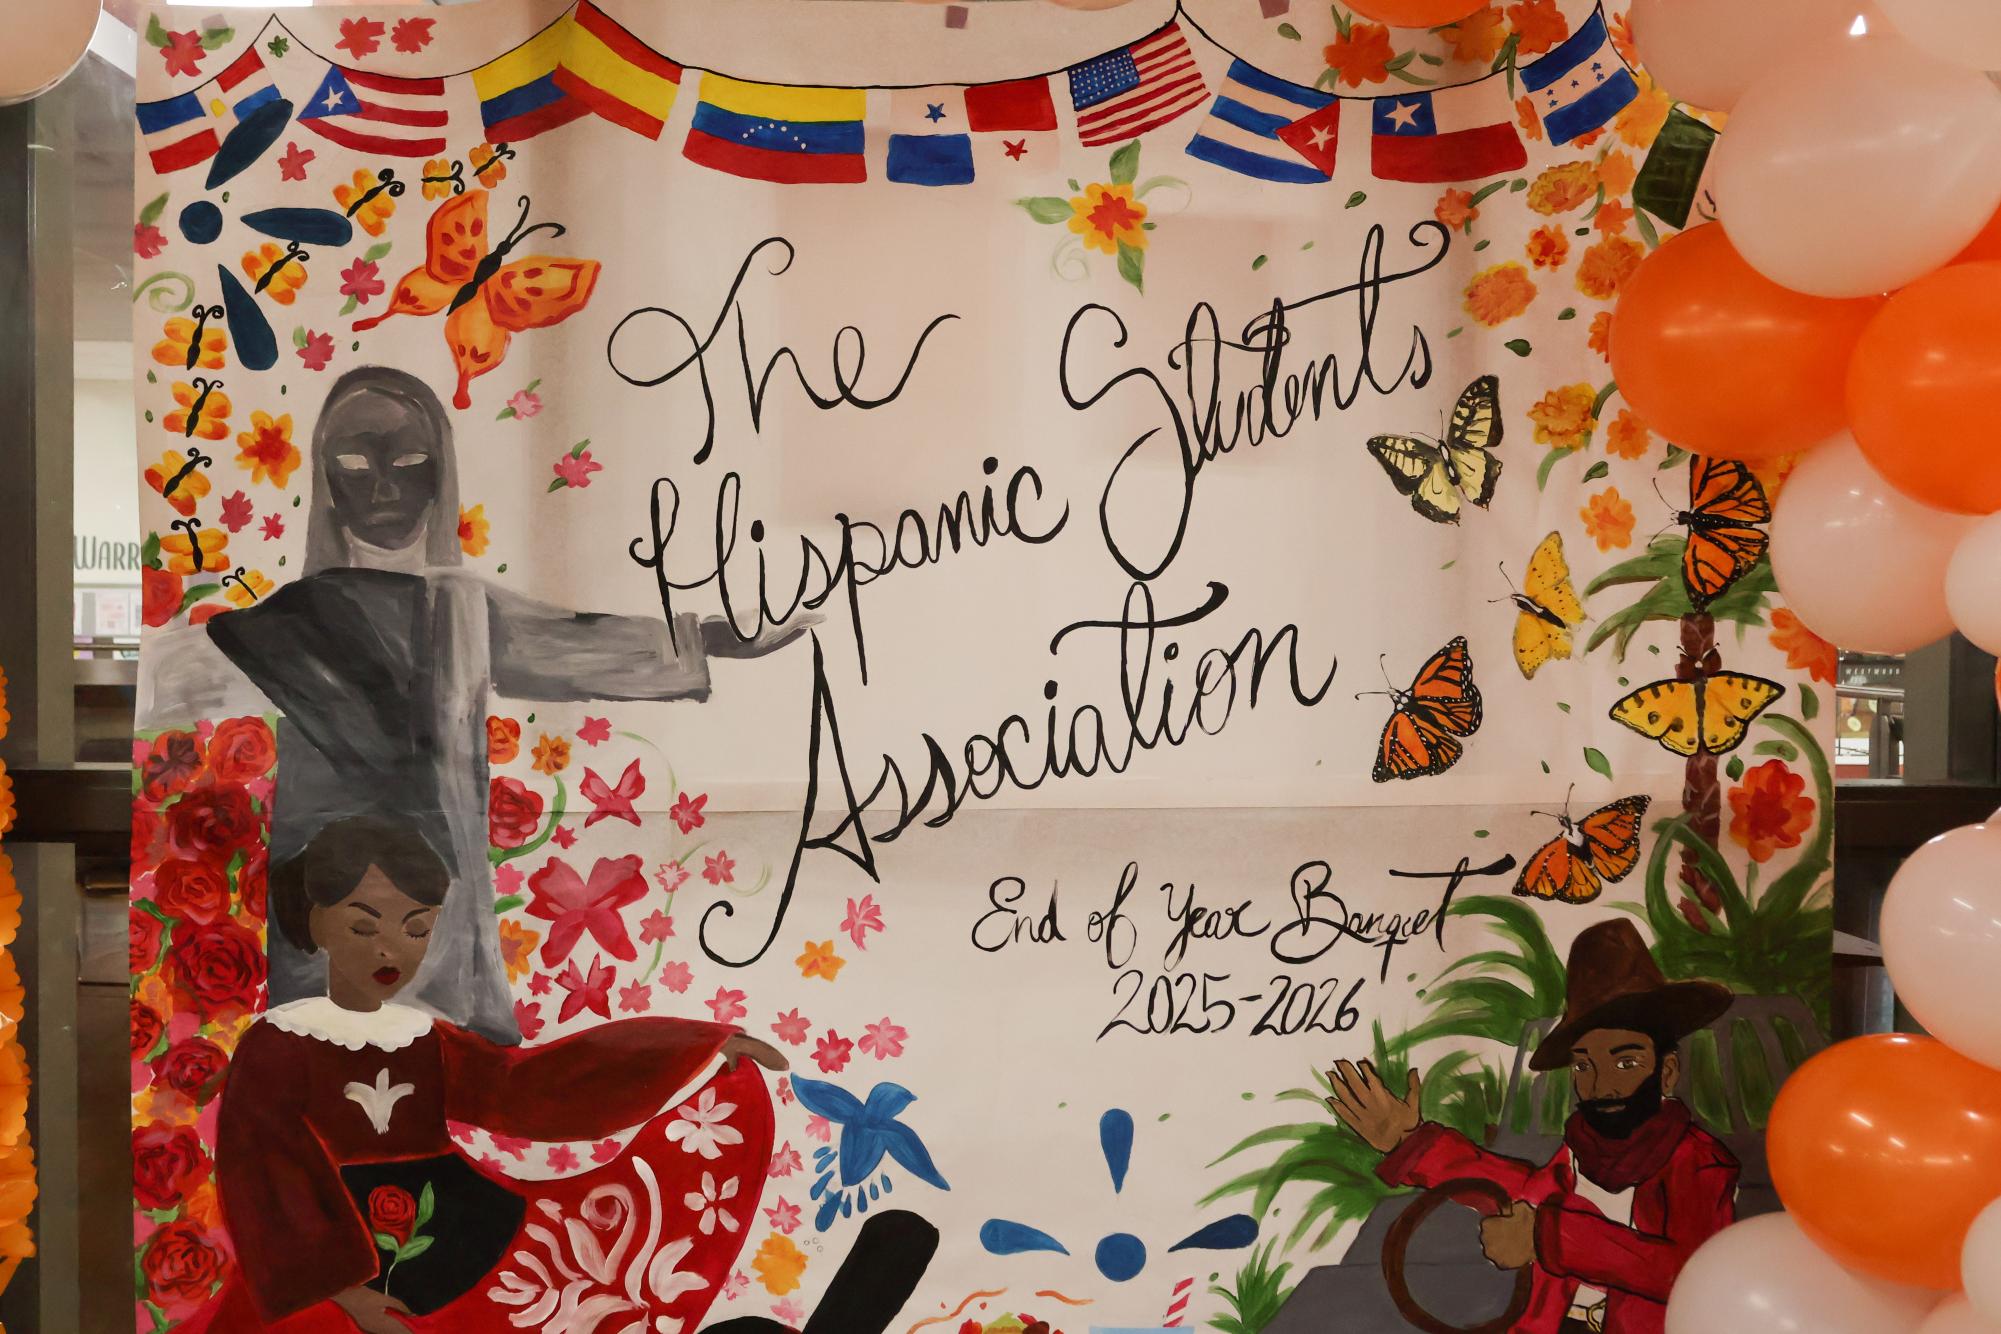 The Students
Hispanic
Association
End of Year Banquet
2025-2026
WARR
WESTWOOD